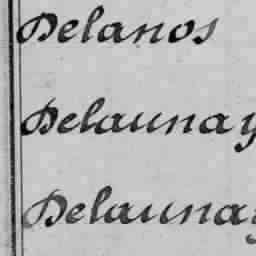 Delanos
Delaunay
Delaunay